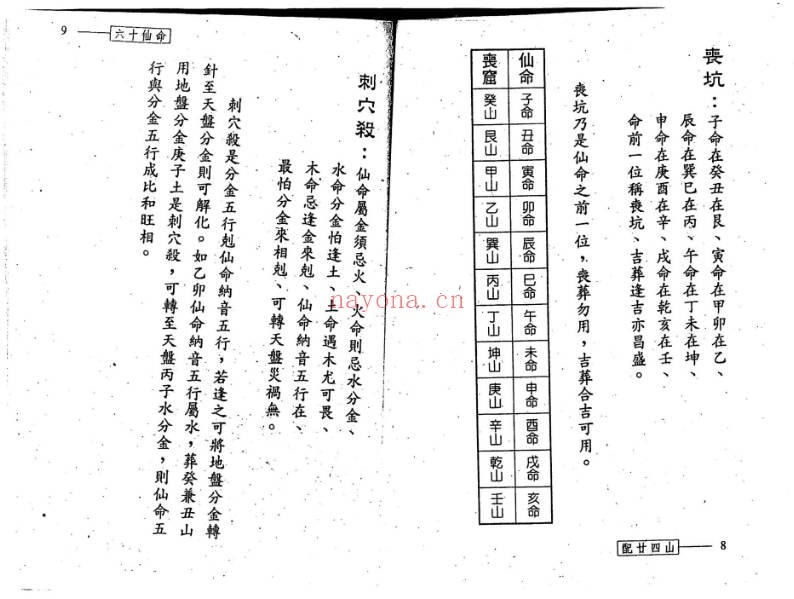 喪坑：子命在癸丑在艮、寅命在甲卯在乙、
辰命在巽巳在丙、午命在丁未在坤、
申命在庚酉在辛、戌命在乾亥在壬、
命前一位稱喪坑、吉葬逢吉亦昌盛。
喪坑乃是仙命之前一位，喪葬勿用，吉葬合吉可用。
仙命 子命 丑命 寅命 卯命 辰命 巳命 午命 未命 申命 酉命 戌命 亥命
喪窟 癸山 艮山 甲山 乙山 巽山 丙山 丁山 坤山 庚山 辛山 乾山 壬山
配廿四山 8
9 六十仙命
刺穴殺：仙命屬金須忌火、火命則忌水分金、
水命分金怕逢土、土命遇木尤可畏、
木命忌逢金來剋、仙命納音五行在、
最怕分金來相剋、可轉天盤災禍無。
刺穴殺是分金五行剋仙命納音五行，若逢之可將地盤分金轉
針至天盤分金則可解化。如乙卯仙命納音五行屬水，葬癸兼丑山
用地盤分金庚子土是刺穴殺，可轉至天盤丙子水分金，則仙命五
行與分金五行成比和旺相。
nayona.cn